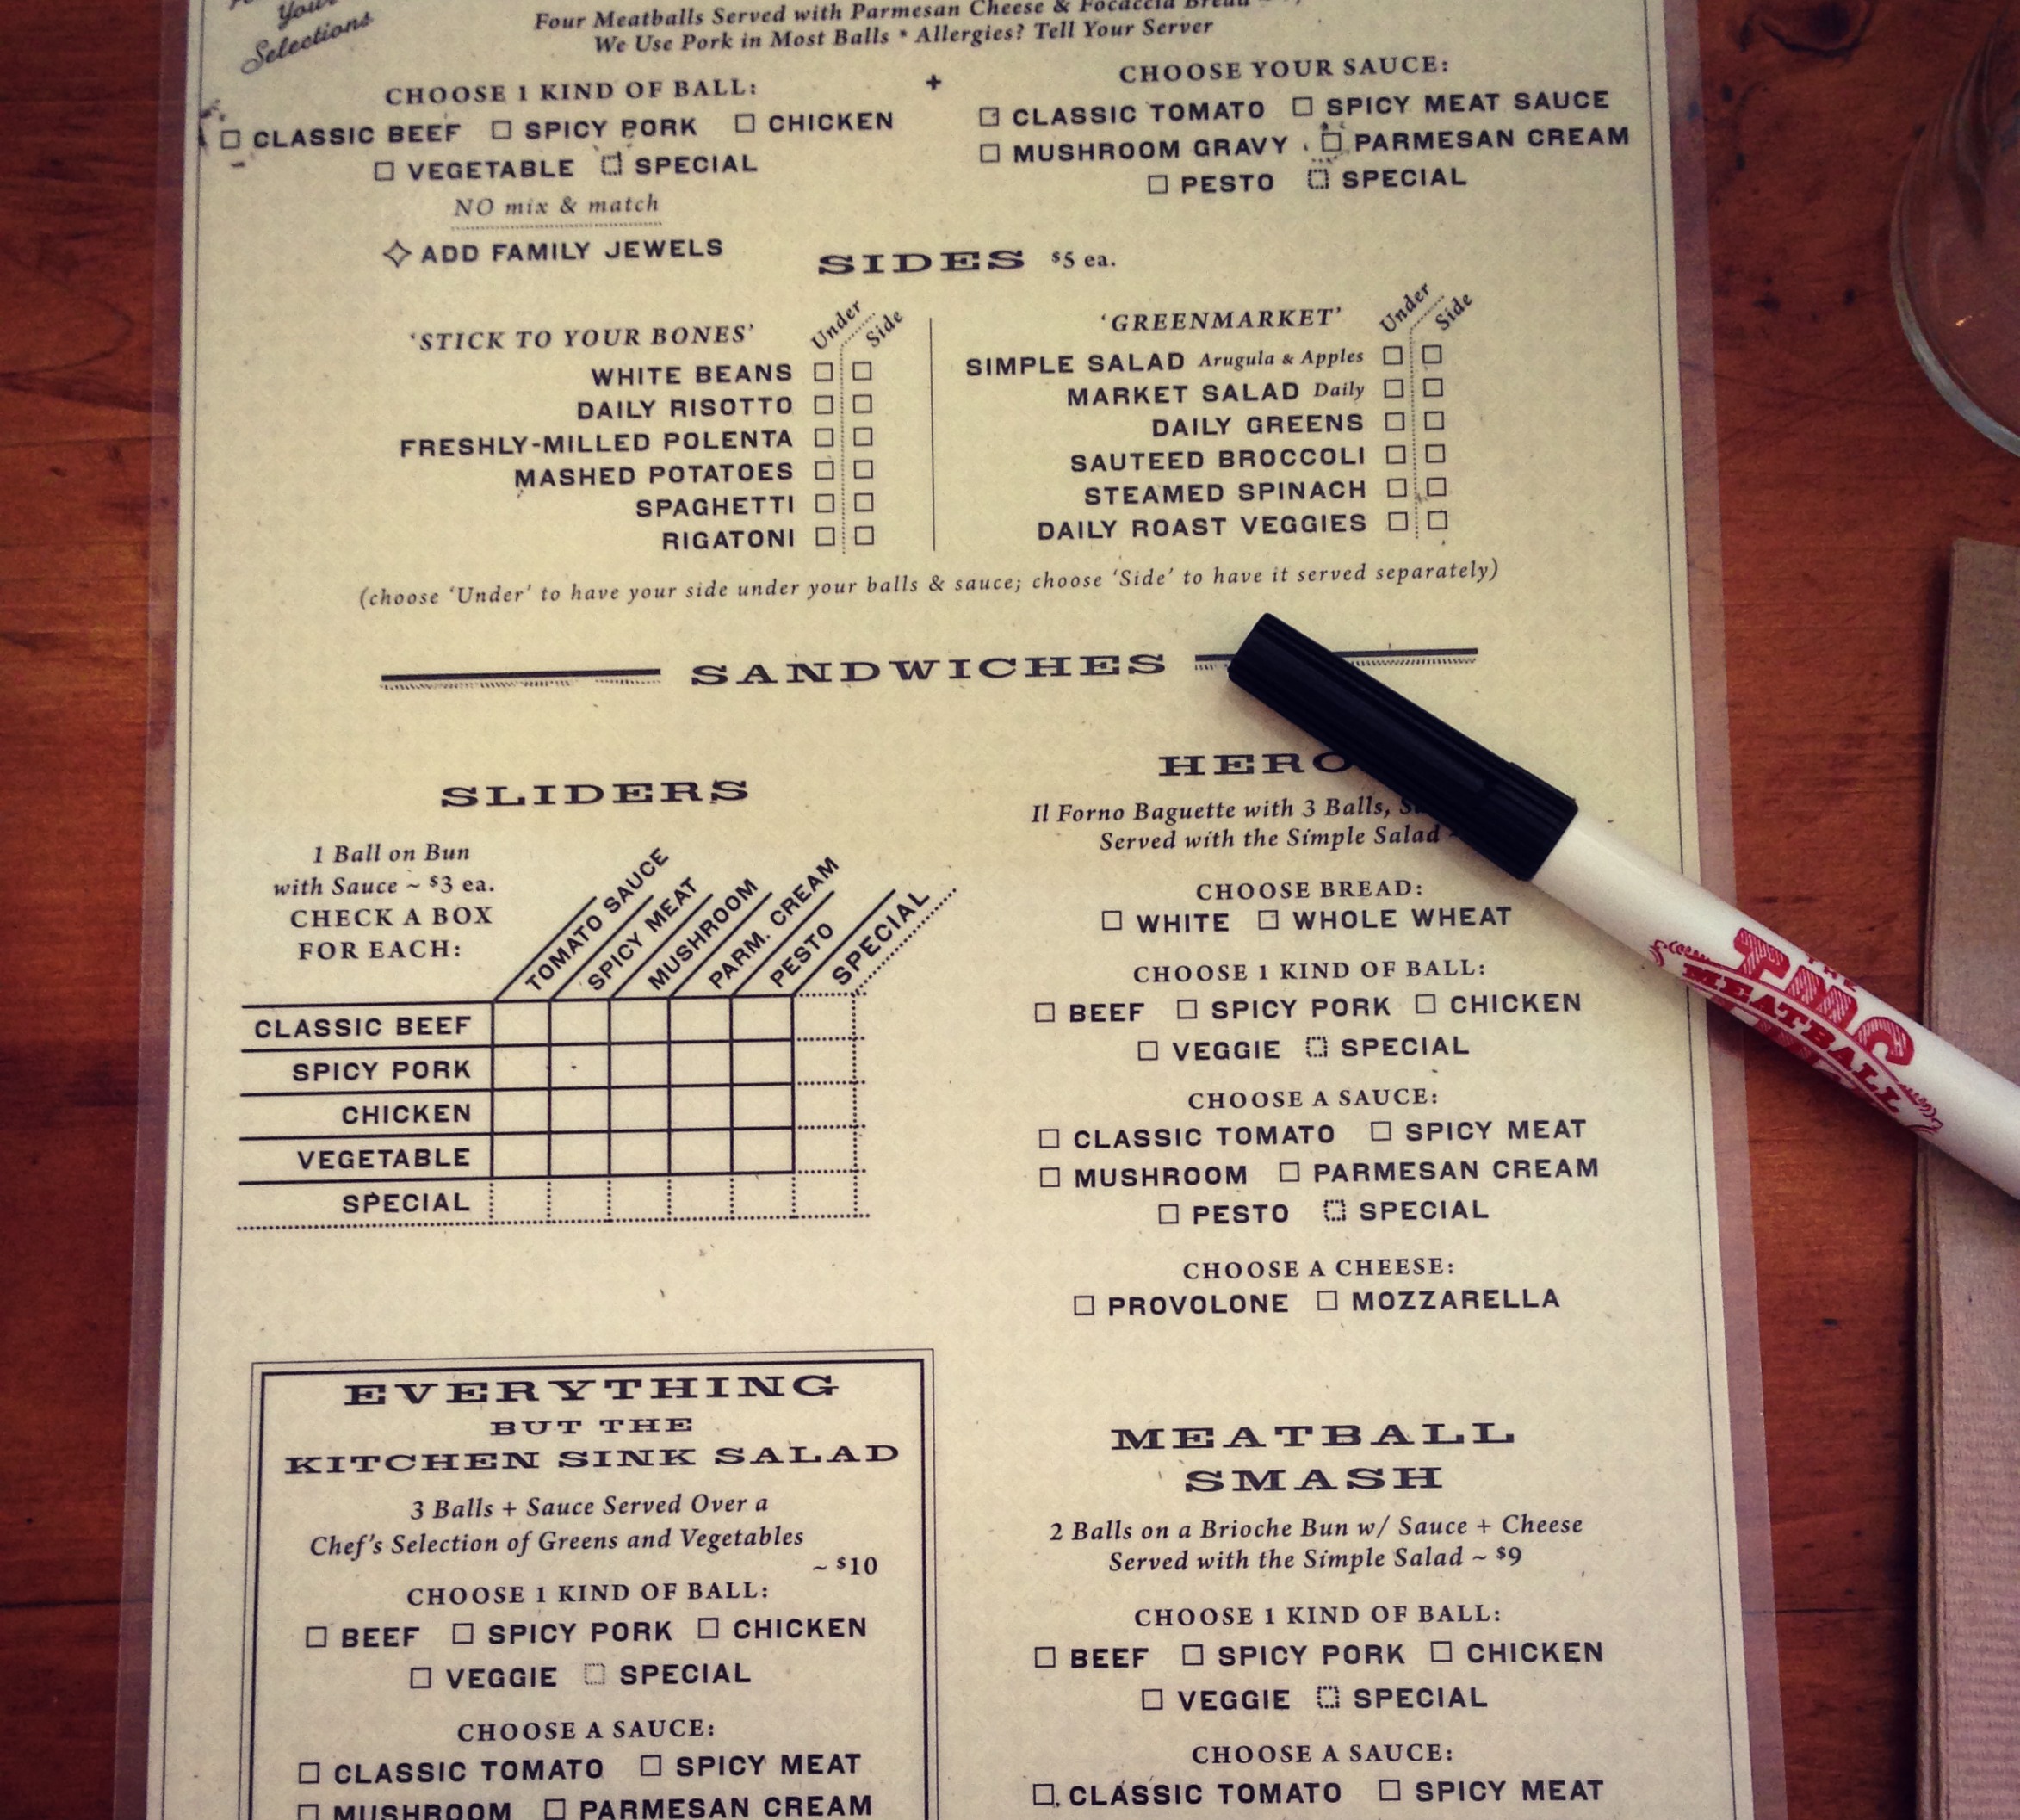 Your
Selections
Four Meatballs Served with Parmesan Cheese & Focaccia Bread
We Use Pork in Most Balls * Allergies? Tell Your Server
CHOOSE 1 KIND OF BALL:
CLASSIC BEEF SPICY PORK CHICKEN
VEGETABLE SPECIAL
NO mix & match
ADD FAMILY JEWELS
+
CHOOSE YOUR SAUCE:
CLASSIC TOMATO SPICY MEAT SAUCE
MUSHROOM GRAVY PARMESAN CREAM
PESTO SPECIAL
SIDES $5 ea.
'STICK TO YOUR BONES' Under Side
WHITE BEANS
DAILY RISOTTO
FRESHLY-MILLED POLENTA
MASHED POTATOES
SPAGHETTI
RIGATONI
'GREENMARKET' Under Side
SIMPLE SALAD Arugula & Apples
MARKET SALAD Daily
DAILY GREENS
SAUTEED BROCCOLI
STEAMED SPINACH
DAILY ROAST VEGGIES
(choose 'Under' to have your side under your balls & sauce; choose 'Side' to have it served separately)
SANDWICHES
SLIDERS
1 Ball on Bun
with Sauce ~ $3 ea.
CHECK A BOX
FOR EACH:
TOMATO SAUCE
SPICY MEAT
MUSHROOM
PARM. CREAM
PESTO
SPECIAL
CLASSIC BEEF
SPICY PORK
CHICKEN
VEGETABLE
SPECIAL
HERO
Il Forno Baguette with 3 Balls,
Served with the Simple Salad ~
CHOOSE BREAD:
WHITE WHOLE WHEAT
CHOOSE 1 KIND OF BALL:
BEEF SPICY PORK CHICKEN
VEGGIE SPECIAL
CHOOSE A SAUCE:
CLASSIC TOMATO SPICY MEAT
MUSHROOM PARMESAN CREAM
PESTO SPECIAL
CHOOSE A CHEESE:
PROVOLONE MOZZARELLA
THE
MEATBALL
EVERYTHING
BUT THE
KITCHEN SINK SALAD
3 Balls + Sauce Served Over a
Chef's Selection of Greens and Vegetables
~ $10
CHOOSE 1 KIND OF BALL:
BEEF SPICY PORK CHICKEN
VEGGIE SPECIAL
CHOOSE A SAUCE:
CLASSIC TOMATO SPICY MEAT
MUSHROOM PARMESAN CREAM
MEATBALL
SMASH
2 Balls on a Brioche Bun w/ Sauce + Cheese
Served with the Simple Salad ~ $9
CHOOSE 1 KIND OF BALL:
BEEF SPICY PORK CHICKEN
VEGGIE SPECIAL
CHOOSE A SAUCE:
CLASSIC TOMATO SPICY MEAT